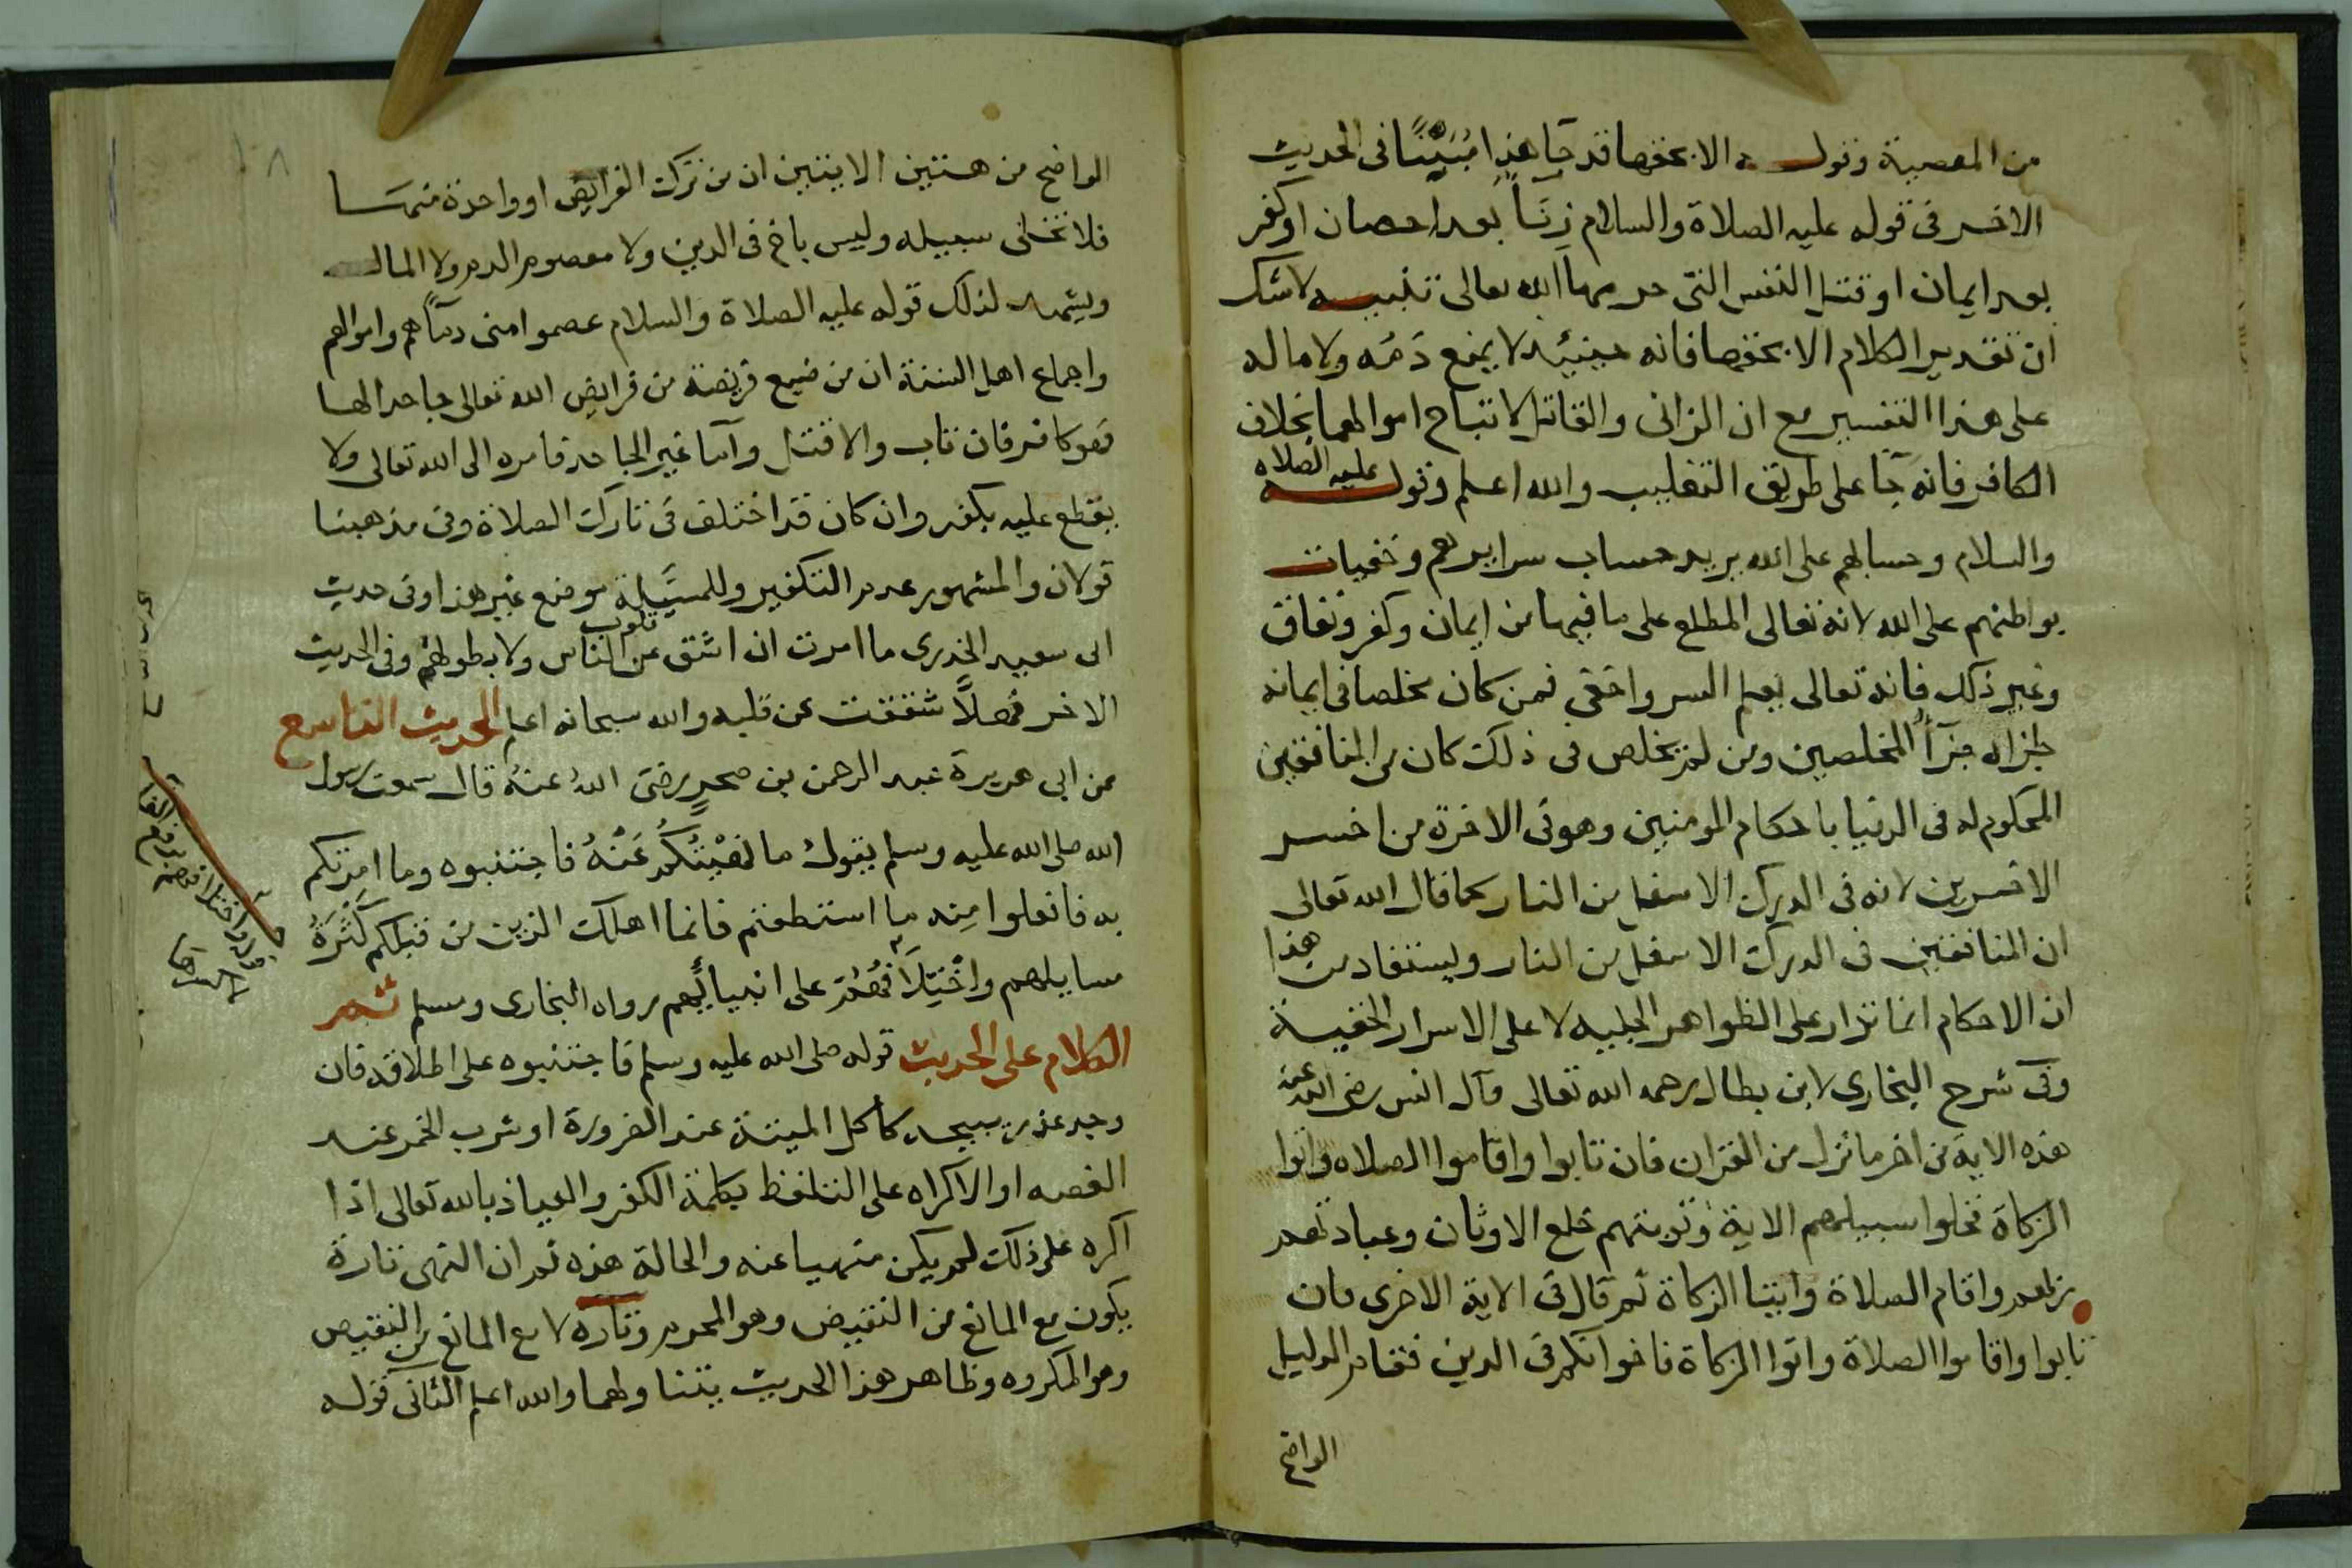 من المعصية وقوله الا بحقها قد جا هذا مُبَيَّنًا فى الحديث
الاخر فى قوله عليه الصلاة والسلام زِنًا بعد احصان او كفر
بعد ايمان او قتل النفس التى حرمها الله تعالى تنبيه لا شك
ان تقدير الكلام الا بحقها فانه حينئذ لا يمنع دَمُه ولا ماله
على هذا التفسير مع ان الزانى والقاتل لا تباح اموالهما بخلاف
الكافر فانه جَا على طريق التغليب والله اعلم وقوله عليه الصلاه
والسلام وحسابهم على الله يريد حساب سرايرهم وخفيات
بواطنهم على الله لانه تعالى المطلع على ما فيها من ايمان وكفر ونفاق
وغير ذلك فانه تعالى يعلم السر واخفى فمن كان مخلصا فى ايمانه
جازاه جزآ المخلصين ومن لم يخلص فى ذلك كان من المنافقين
المحكوم له فى الدنيا باحكام المومنين وهو فى الاخرة من اخسر
الاخسرين لانه فى الدرك الاسفل من النار كما قال الله تعالى
ان المنافقين فى الدرك الاسفل من النار ويستفاد من هذا
ان الاحكام انما تدار على الظواهر الجليه لا على الاسرار الخفية
وفى شرح البخارى لابن بطال رحمه الله تعالى قال انس رضى الله عنه
هذه الاية من اخر ما نزل من القران فان تابوا واقاموا الصلاه واتوا
الزكاة فخلوا سبيلهم الاية وتوبتهم خلع الاوثان وعبادتهم
لربهم واقام الصلاة وايتا الزكاة ثم قال فى الاية الاخرى فان
تابوا واقاموا الصلاة واتوا الزكاة فاخوانكم فى الدين فقام الدليل
الواضح
الواضح من هتين الايتين ان من ترك الفرايض او واحدة منهسا
فلا تخلى سبيله وليس باخ فى الدين ولا معصوم الدم ولا المال
ويشهد لذلك قوله عليه الصلاة والسلام عصموا منى دمآهم واموالهم
واجماع اهل السنة ان من ضيع فريضة من فرايض الله تعالى جاحدا لها
فهو كافر فان تاب والا قتل وآما غير الجاحد فامره الى الله تعالى ولا
يقطع عليه بكفر وان كان قد اختلف فى تارك الصلاة وفى مذهبنا
قولان والمشهور عدم التكفير وللمسئلة موضع غير هذا وفى حديث
ابى سعيد الخدرى ما امرت ان اشق عن قلوب الناس ولا بطونهم وفى الحديث
الاخر فهلَّا شققت عن قلبه والله سبحانه اعلم الحديث التاسع
عن ابى هريرة عبد الرحمن بن صخرٍ رضى اللهُ عنهُ قال سمعت رسول
الله صلى الله عليه وسلم يقول ما نهيْتُكُم عَنْهُ فاجتنبوه وما امرتكم
به فافعلوا مِنه ما استطعتم فانما اهلك الذين من قبلكم كَثْرَةُ
مسايلهم واخْتِلَافُهُم على انبيائهم رواه البخارى ومسلم ثم
الكلام على الحديث قوله صلى الله عليه وسلم فاجتنبوه على اطلاقه فان
وجد عذر يبيحه كاكل الميتة عند الضرورة او شرب الخمر عند
الغصه او الاكراه على التلفظ بكلمة الكفر والعياذ بالله تعالى اذا
اكره على ذلك لم يكن منهيا عنه والحالة هذه ثم ان النهى تارة
يكون مع المانع من النقيض وهو المحرم وتاره لا مع المانع من النقيض
وهو المكروه وظاهر هذا الحديث يتناولهما والله اعلم الثانى قوله
قوله واختلافهم برفع الفا